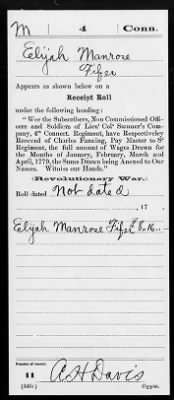 M | 4 | Conn.
Elijah Manrose
Fifer
Appears as shown below on a
Receipt Roll
under the following heading:
"Wee the Subscribers, Non Commissioned Offi-
cers and Soldiers of Lieu't Col° Sumner's Com-
pany, 4th Connect. Regiment, have Respectively
Received of Charles Fanning, Pay Master to S'd
Regiment, the full amount of Wages Drawn for
the Months of January, February, March and
April, 1779, the Sums Drawn being Annexed to our
Names. Witness our Hands."
(Revolutionary War.)
Roll dated Not dated
, 17 .
Elijah Manrose Fifer
Number of record:
11
A H Davis
Copyist.